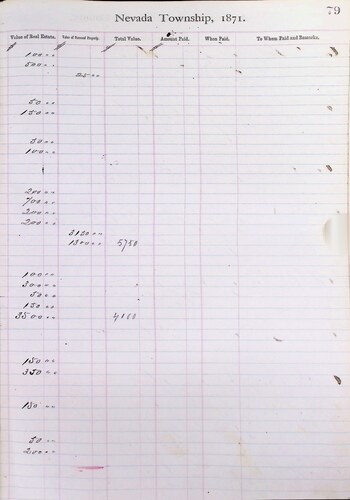 79
Nevada Township, 1871.
Value of Real Estate. Value of Personal Property. Total Value. Amount Paid. When Paid. To Whom Paid and Remarks.
100 00
500 00
25 00
50 00
150 00
50 00
100 00
200 00
700 00
200 00
200 00
3150 00
1500 00 5750
100 00
300 00
50 00
150 00
3500 00 4100
150 00
350 00
150 00
50 00
200 00